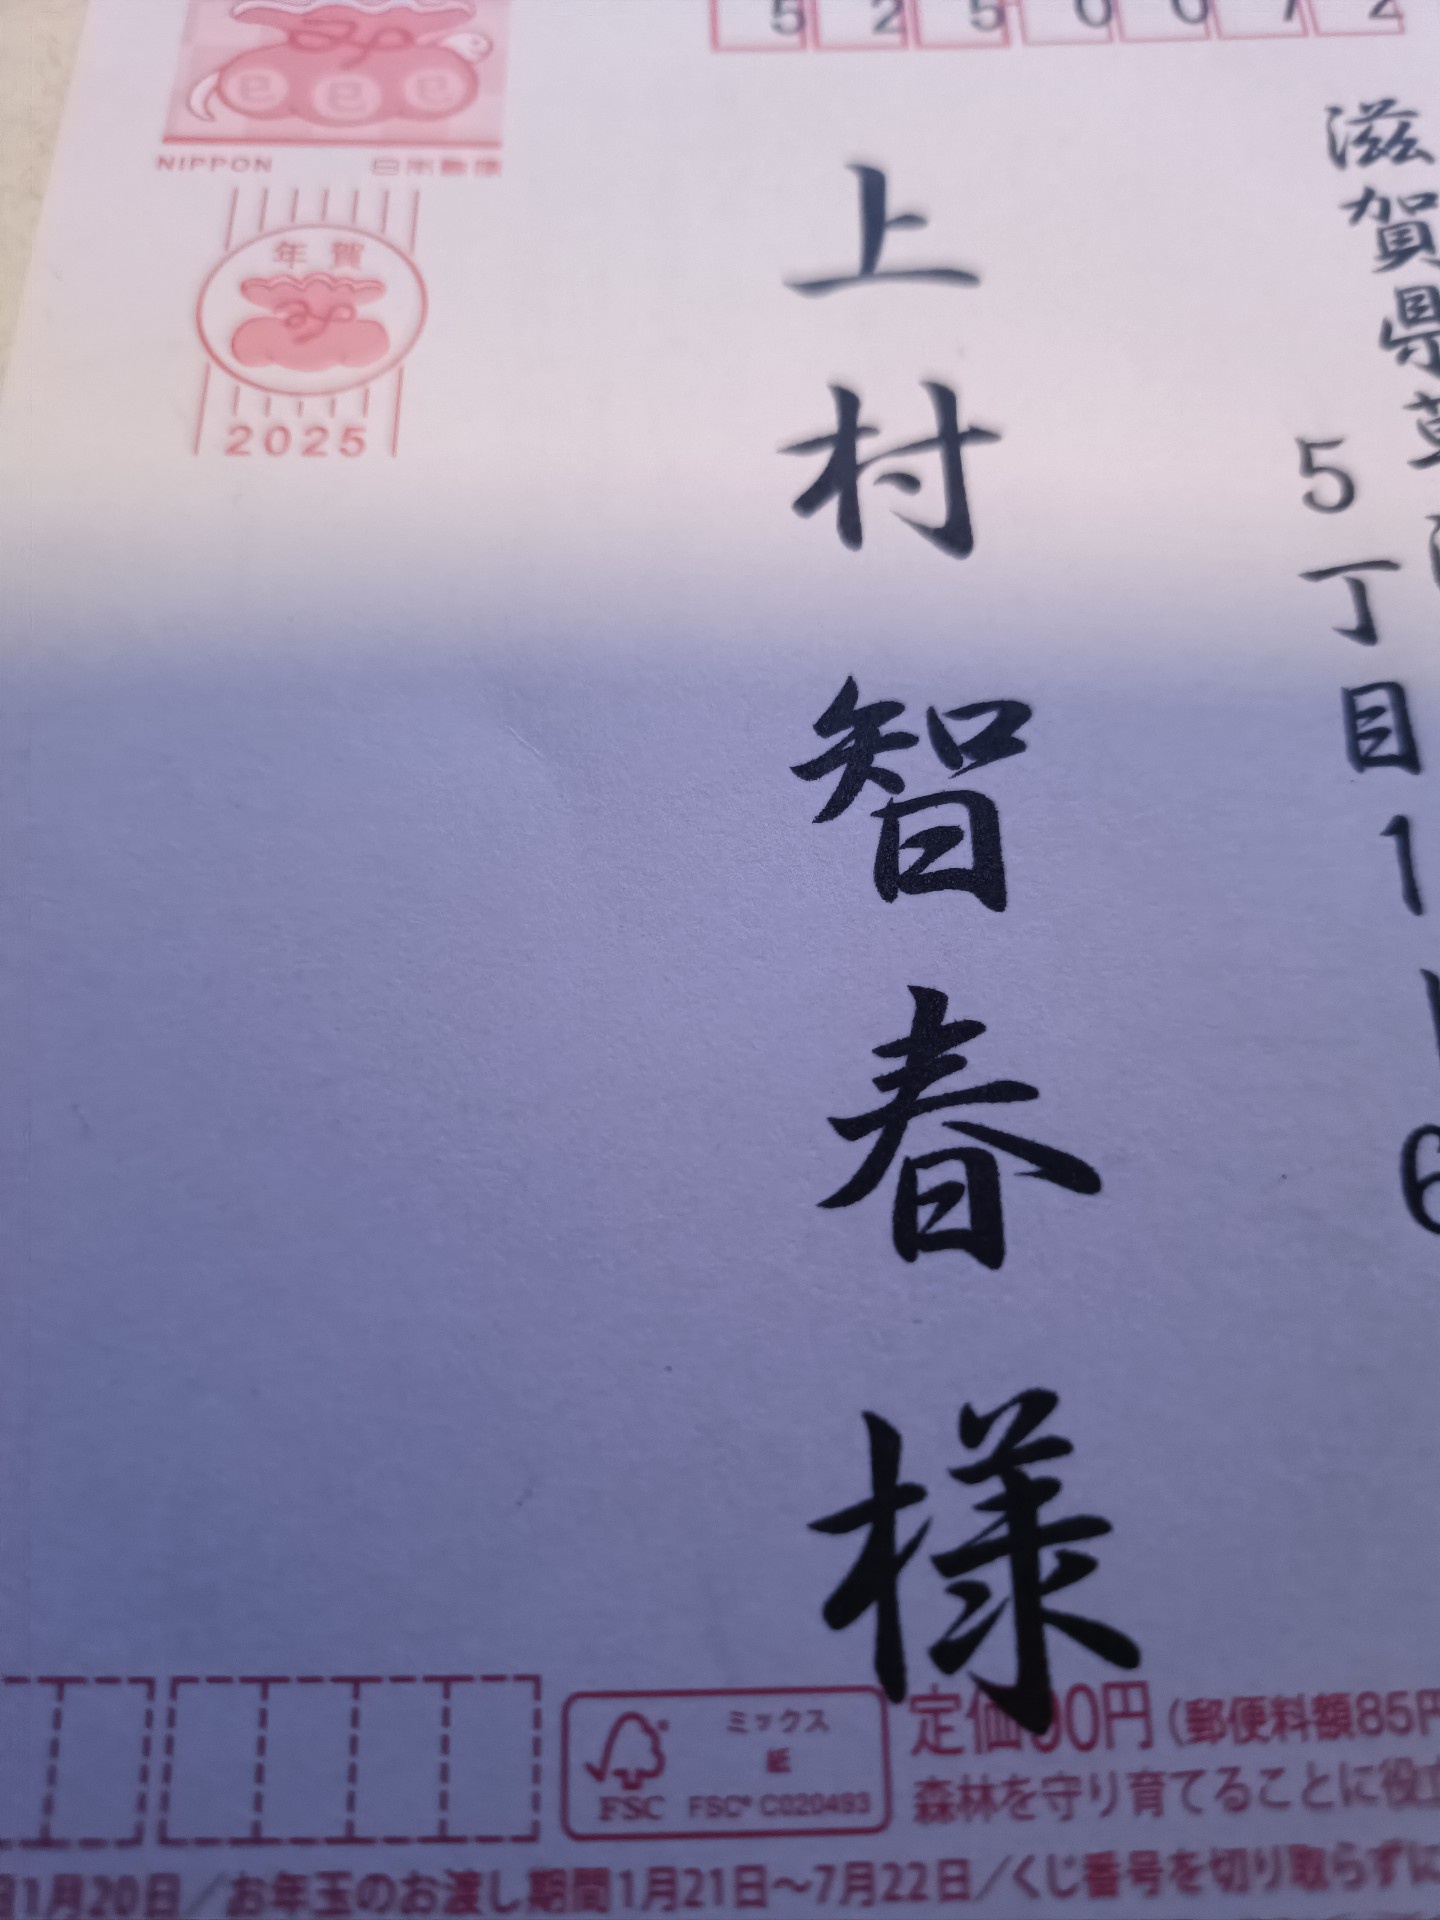 5250072
滋賀県草
5丁目1
6
上村智春様
巳巳巳
NIPPON 日本郵便
年賀
2025
ミックス
紙
FSC
FSC® C020493
定価90円(郵便料額85円
森林を守り育てることに役立
1月20日/お年玉のお渡し期間1月21日〜7月22日/くじ番号を切り取らずに